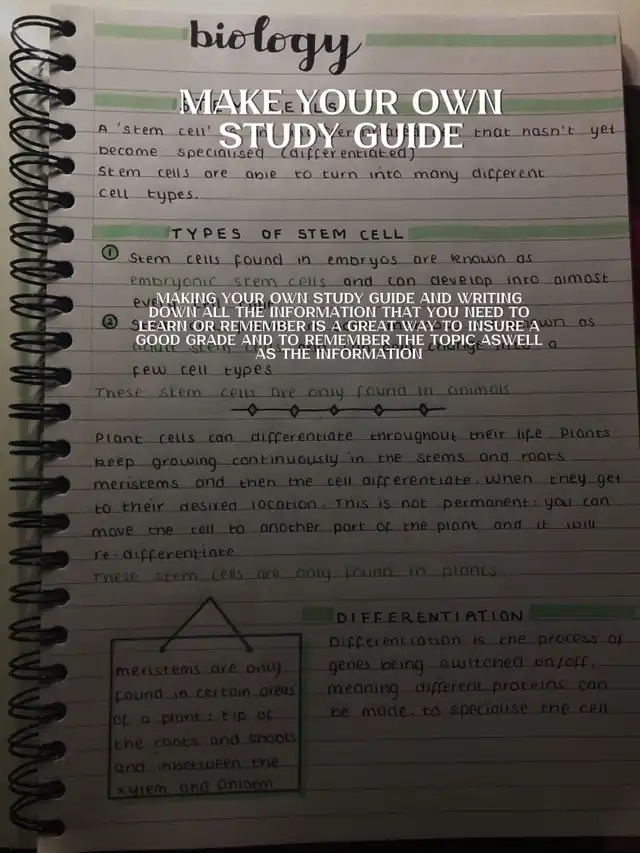 biology
STEM CELLS
MAKE YOUR OWN
STUDY GUIDE
A 'stem cell' is an undifferentiated cell that hasn't yet
become specialised (differentiated)
Stem cells are able to turn into many different
cell types.
TYPES OF STEM CELL
① Stem cells found in embryos are known as
embryonic stem cells and can develop into almost
every
MAKING YOUR OWN STUDY GUIDE AND WRITING
DOWN ALL THE INFORMATION THAT YOU NEED TO
LEARN OR REMEMBER IS A GREAT WAY TO INSURE A
GOOD GRADE AND TO REMEMBER THE TOPIC ASWELL
AS THE INFORMATION
② known as
adult stem change into a
few cell types
These stem cells are only found in animals
Plant cells can differentiate throughout their life. Plants
keep growing continuously in the stems and roots
meristems and then the cell differentiate. When they get
to their desired location. This is not permanent: you can
move the cell to another part of the plant and it will
re-differentiate
These stem cells are only found in plants
meristems are only
found in certain areas
of a plant: tip of
the roots and shoots
and inbetween the
xylem and phloem
DIFFERENTIATION
Differentiation is the process of
genes being switched on/off,
meaning different proteins can
be made. to specialise the cell